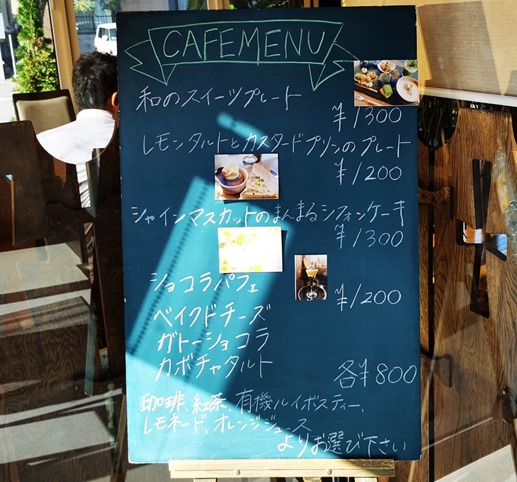 CAFEMENU
和のスイーツプレート
¥1300
レモンタルトとカスタードプリンのプレート
¥1200
シャインマスカットのまんまるシフォンケーキ
¥1300
ショコラパフェ
¥1200
ベイクドチーズ
ガトーショコラ
カボチャタルト
各¥800
珈琲、紅茶、有機ルイボスティー、
レモネード、オレンジジュース
よりお選び下さい